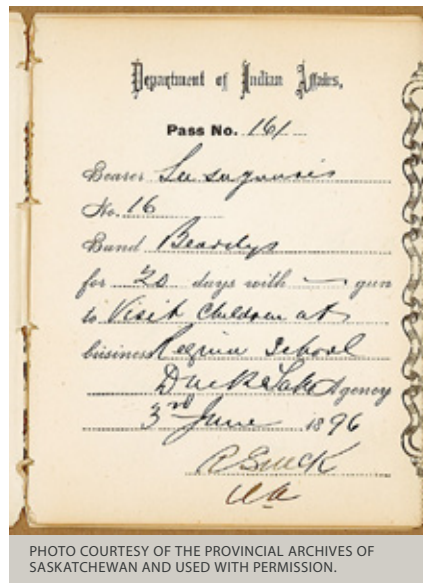 Department of Indian Affairs,
Pass No. 161
Bearer
No. 16
Band Beardys
for 20 days with — gun
to Visit Children at
business Regina School
Duck Lake Agency
3rd June 1896
PHOTO COURTESY OF THE PROVINCIAL ARCHIVES OF
SASKATCHEWAN AND USED WITH PERMISSION.